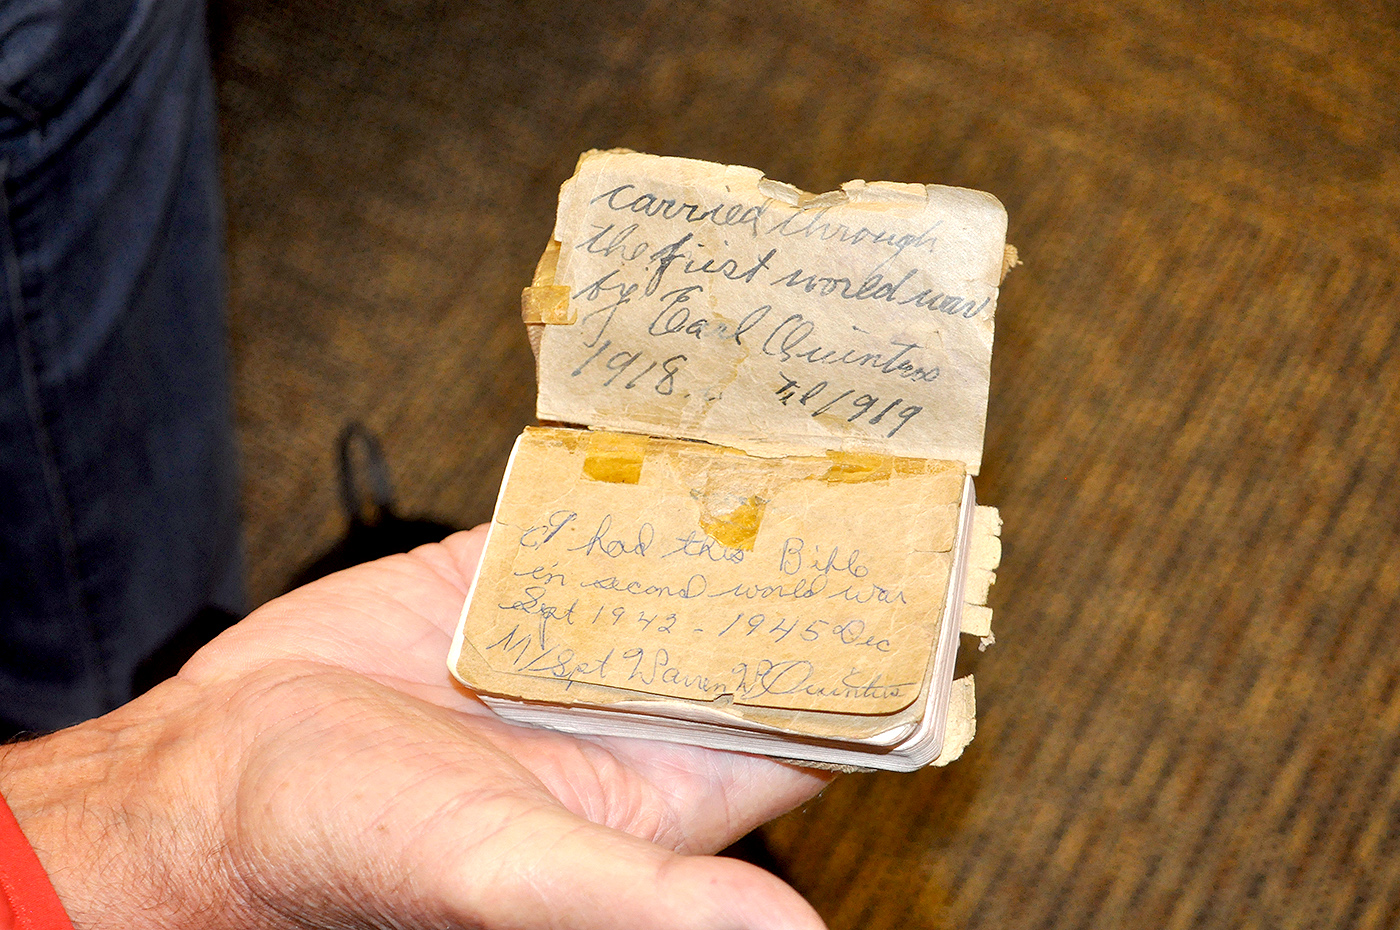 carried through
the first world war
by Earl Quinters
1918.. Til/1919
I had this Bible
in second world war
Sept 1942 - 1945 Dec
M/Sgt Warren W Quinters